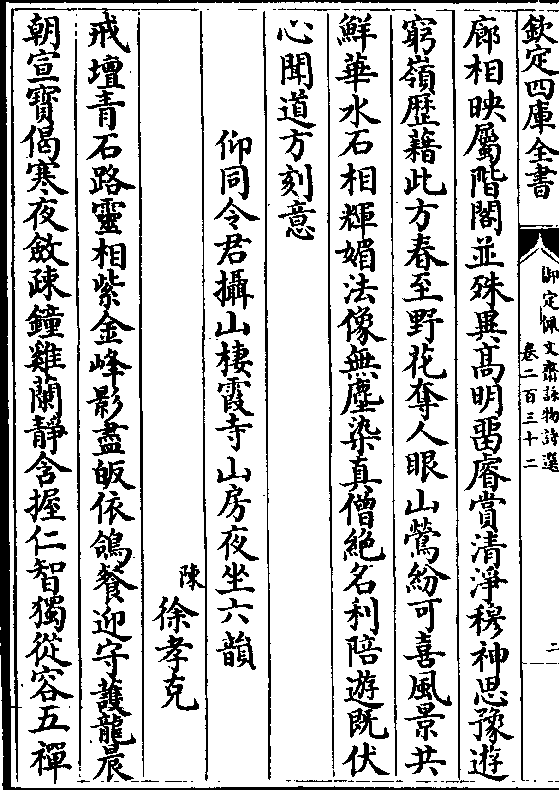 欽定四庫全書
御定佩文齋詠物詩選
卷二百三十二
二
廊相映屬階閣並殊異高明畱睿賞清淨穆神思豫遊
窮嶺歴藉此方春至野花奪人眼山鶯紛可喜風景共
鮮華水石相輝媚法像無塵染真僧絶名利陪遊既伏
心聞道方刻意
仰同令君攝山棲霞寺山房夜坐六韻
陳 徐孝克
戒壇青石路靈相紫金峰影盡皈依鴿餐迎守護龍晨
朝宣寳偈寒夜斂疎鐘雞蘭靜含握仁智獨從容五禪